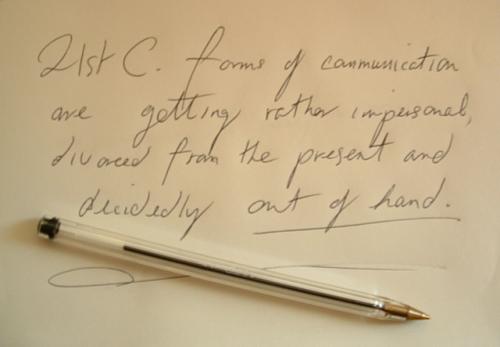 21st C. forms of communication
are getting rather impersonal,
divorced from the present and
decidedly out of hand.